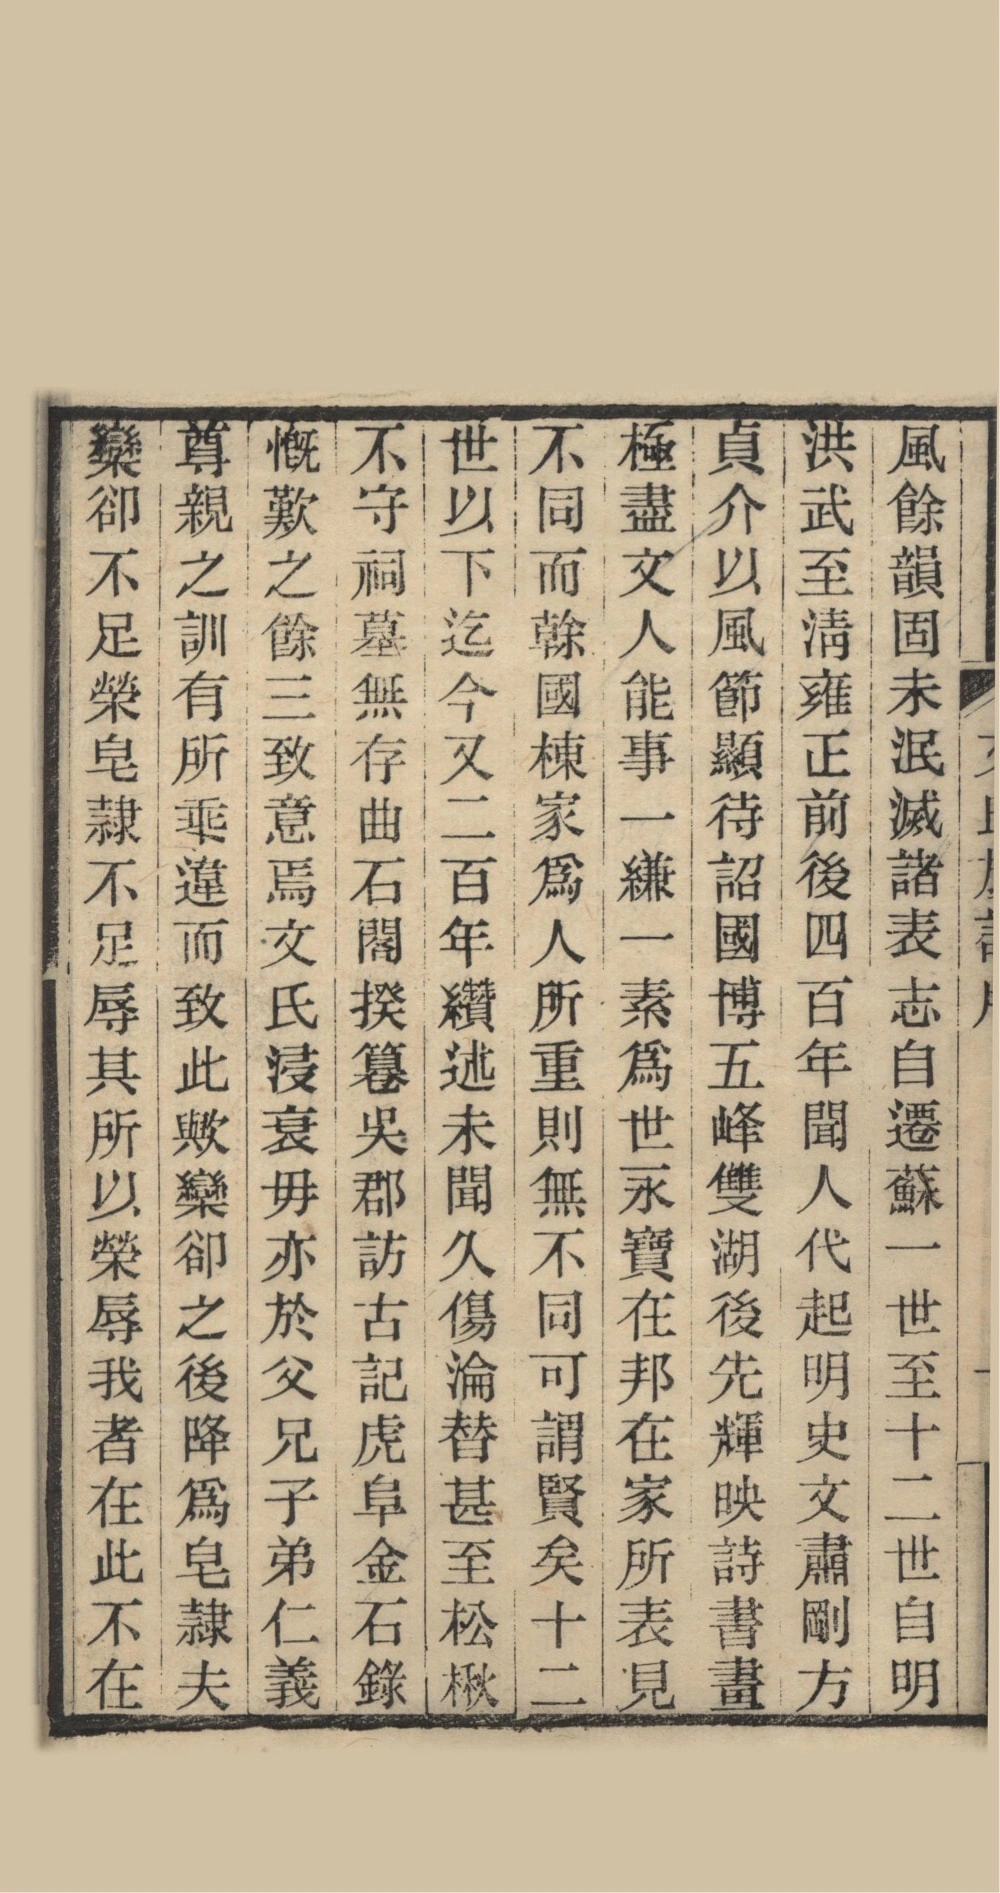 風餘韻固未泯滅諸表志自遷蘇一世至十二世自明
洪武至淸雍正前後四百年聞人代起明史文肅剛方
貞介以風節顯待詔國博五峰雙湖後先輝映詩書畫
極盡文人能事一縑一素爲世永寶在邦在家所表見
不同而榦國棟家爲人所重則無不同可謂賢矣十二
世以下迄今又二百年纘述未聞久傷淪替甚至松楸
不守祠墓無存曲石閣揆篹吳郡訪古記虎阜金石錄
慨歎之餘三致意焉文氏浸衰毋亦於父兄子弟仁義
尊親之訓有所乖違而致此歟欒卻之後降爲皂隸夫
欒卻不足榮皂隸不足辱其所以榮辱我者在此不在